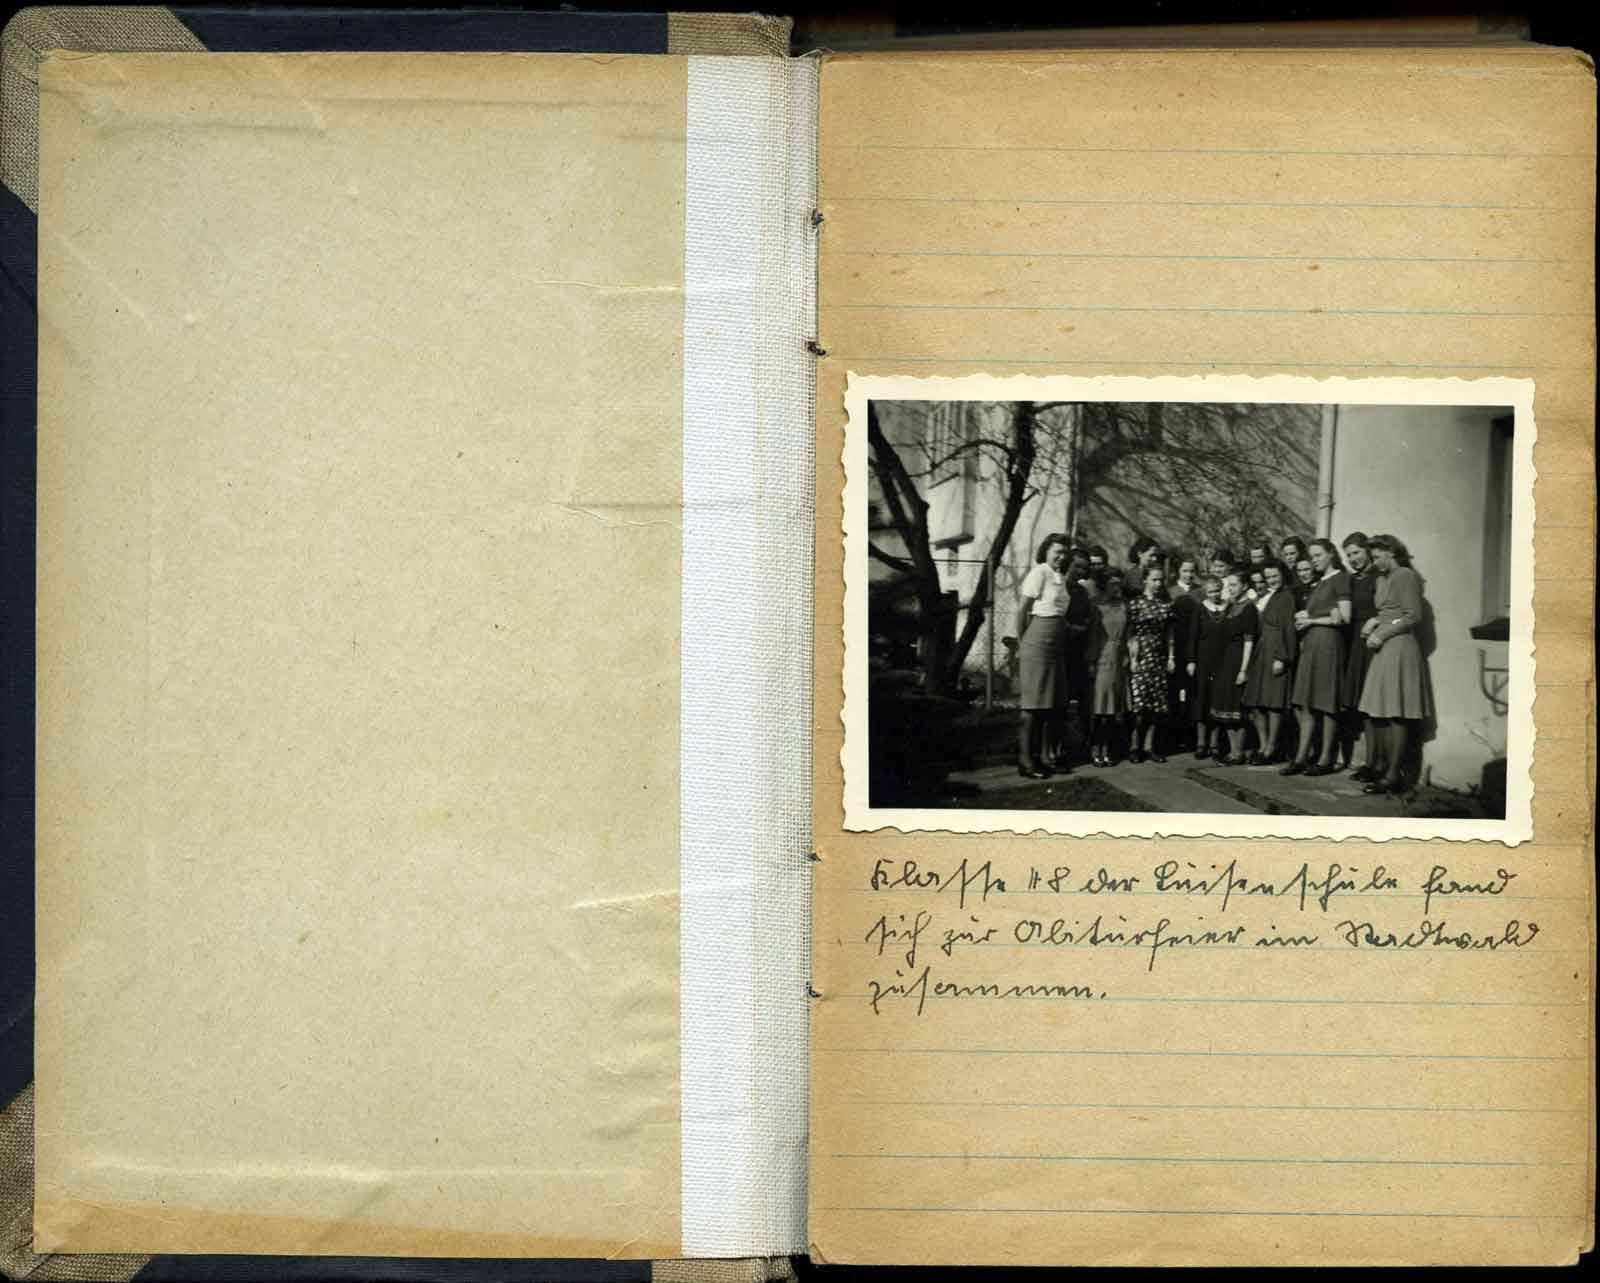 Klasse H8 der Luisenschule fand
sich zur Abiturfeier im Stadtwald
zusammen.